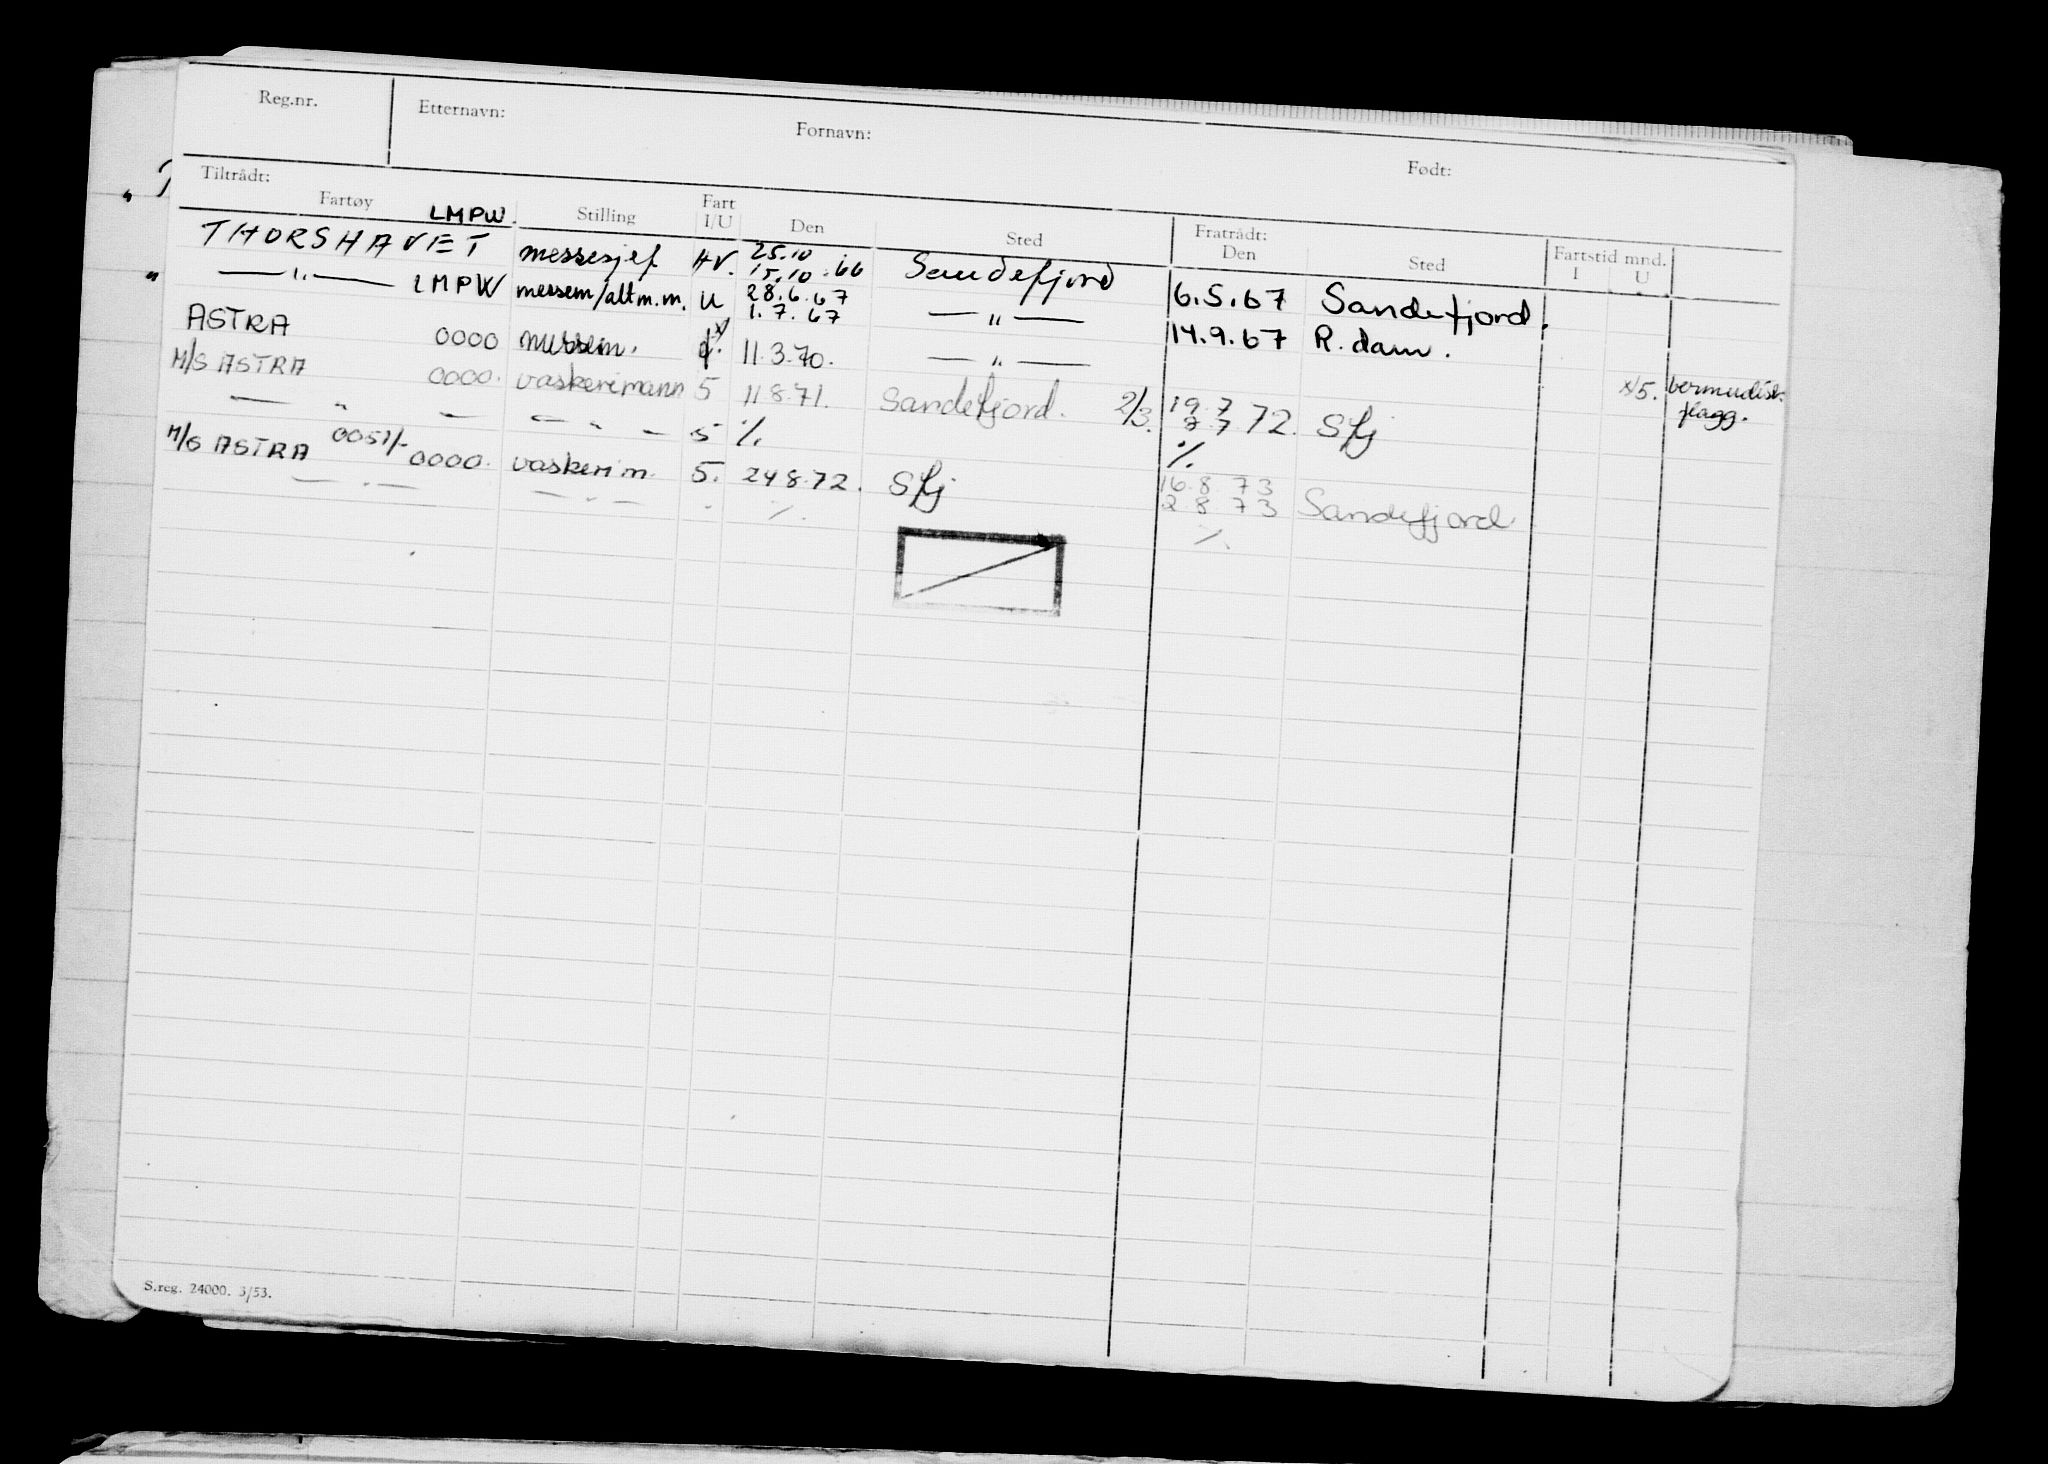 Reg.nr. Etternavn: Fornavn: Født:
Tiltrådt: Fratrådt:
Fartøy Stilling Fart I/U Den Sted Den Sted Fartstid mnd. I U
THORSHAVET LMPW. messesjef HV. 25.10 15.10.66 Sandefjord 6.5.67 Sandefjord.
—〃— LMPW messem/altm.m. U 28.6.67 1.7.67 —〃— 14.9.67 R.dam.
ASTRA 0000 messem. x) 11.3.70. —〃— x) 5. bermudisk flagg.
M/S ASTRA 0000. vaskerimann 5 11.8.71. Sandefjord. 2/3. 19.7 7.7 72. Sfj
— 〃 — — 〃 — 5 ./. ./.
M/S ASTRA 0051/- 0000. vaskerim. 5. 24.8.72. Sfj 16.8.73 2.8.73 Sandefjord
— 〃 — — 〃 — ./. ./.
S.reg. 24000. 3/53.